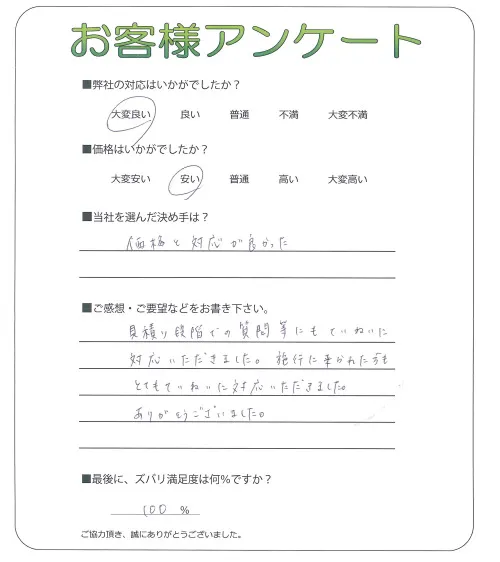 お客様アンケート
■弊社の対応はいかがでしたか？
大変良い 良い 普通 不満 大変不満
■価格はいかがでしたか？
大変安い 安い 普通 高い 大変高い
■当社を選んだ決め手は？
価格と対応が良かった
■ご感想・ご要望などをお書き下さい。
見積り段階での質問等にもていねいに
対応いただきました。施行に来られた方も
とてもていねいに対応いただきました。
ありがとうございました。
■最後に、ズバリ満足度は何％ですか？
100 %
ご協力頂き、誠にありがとうございました。